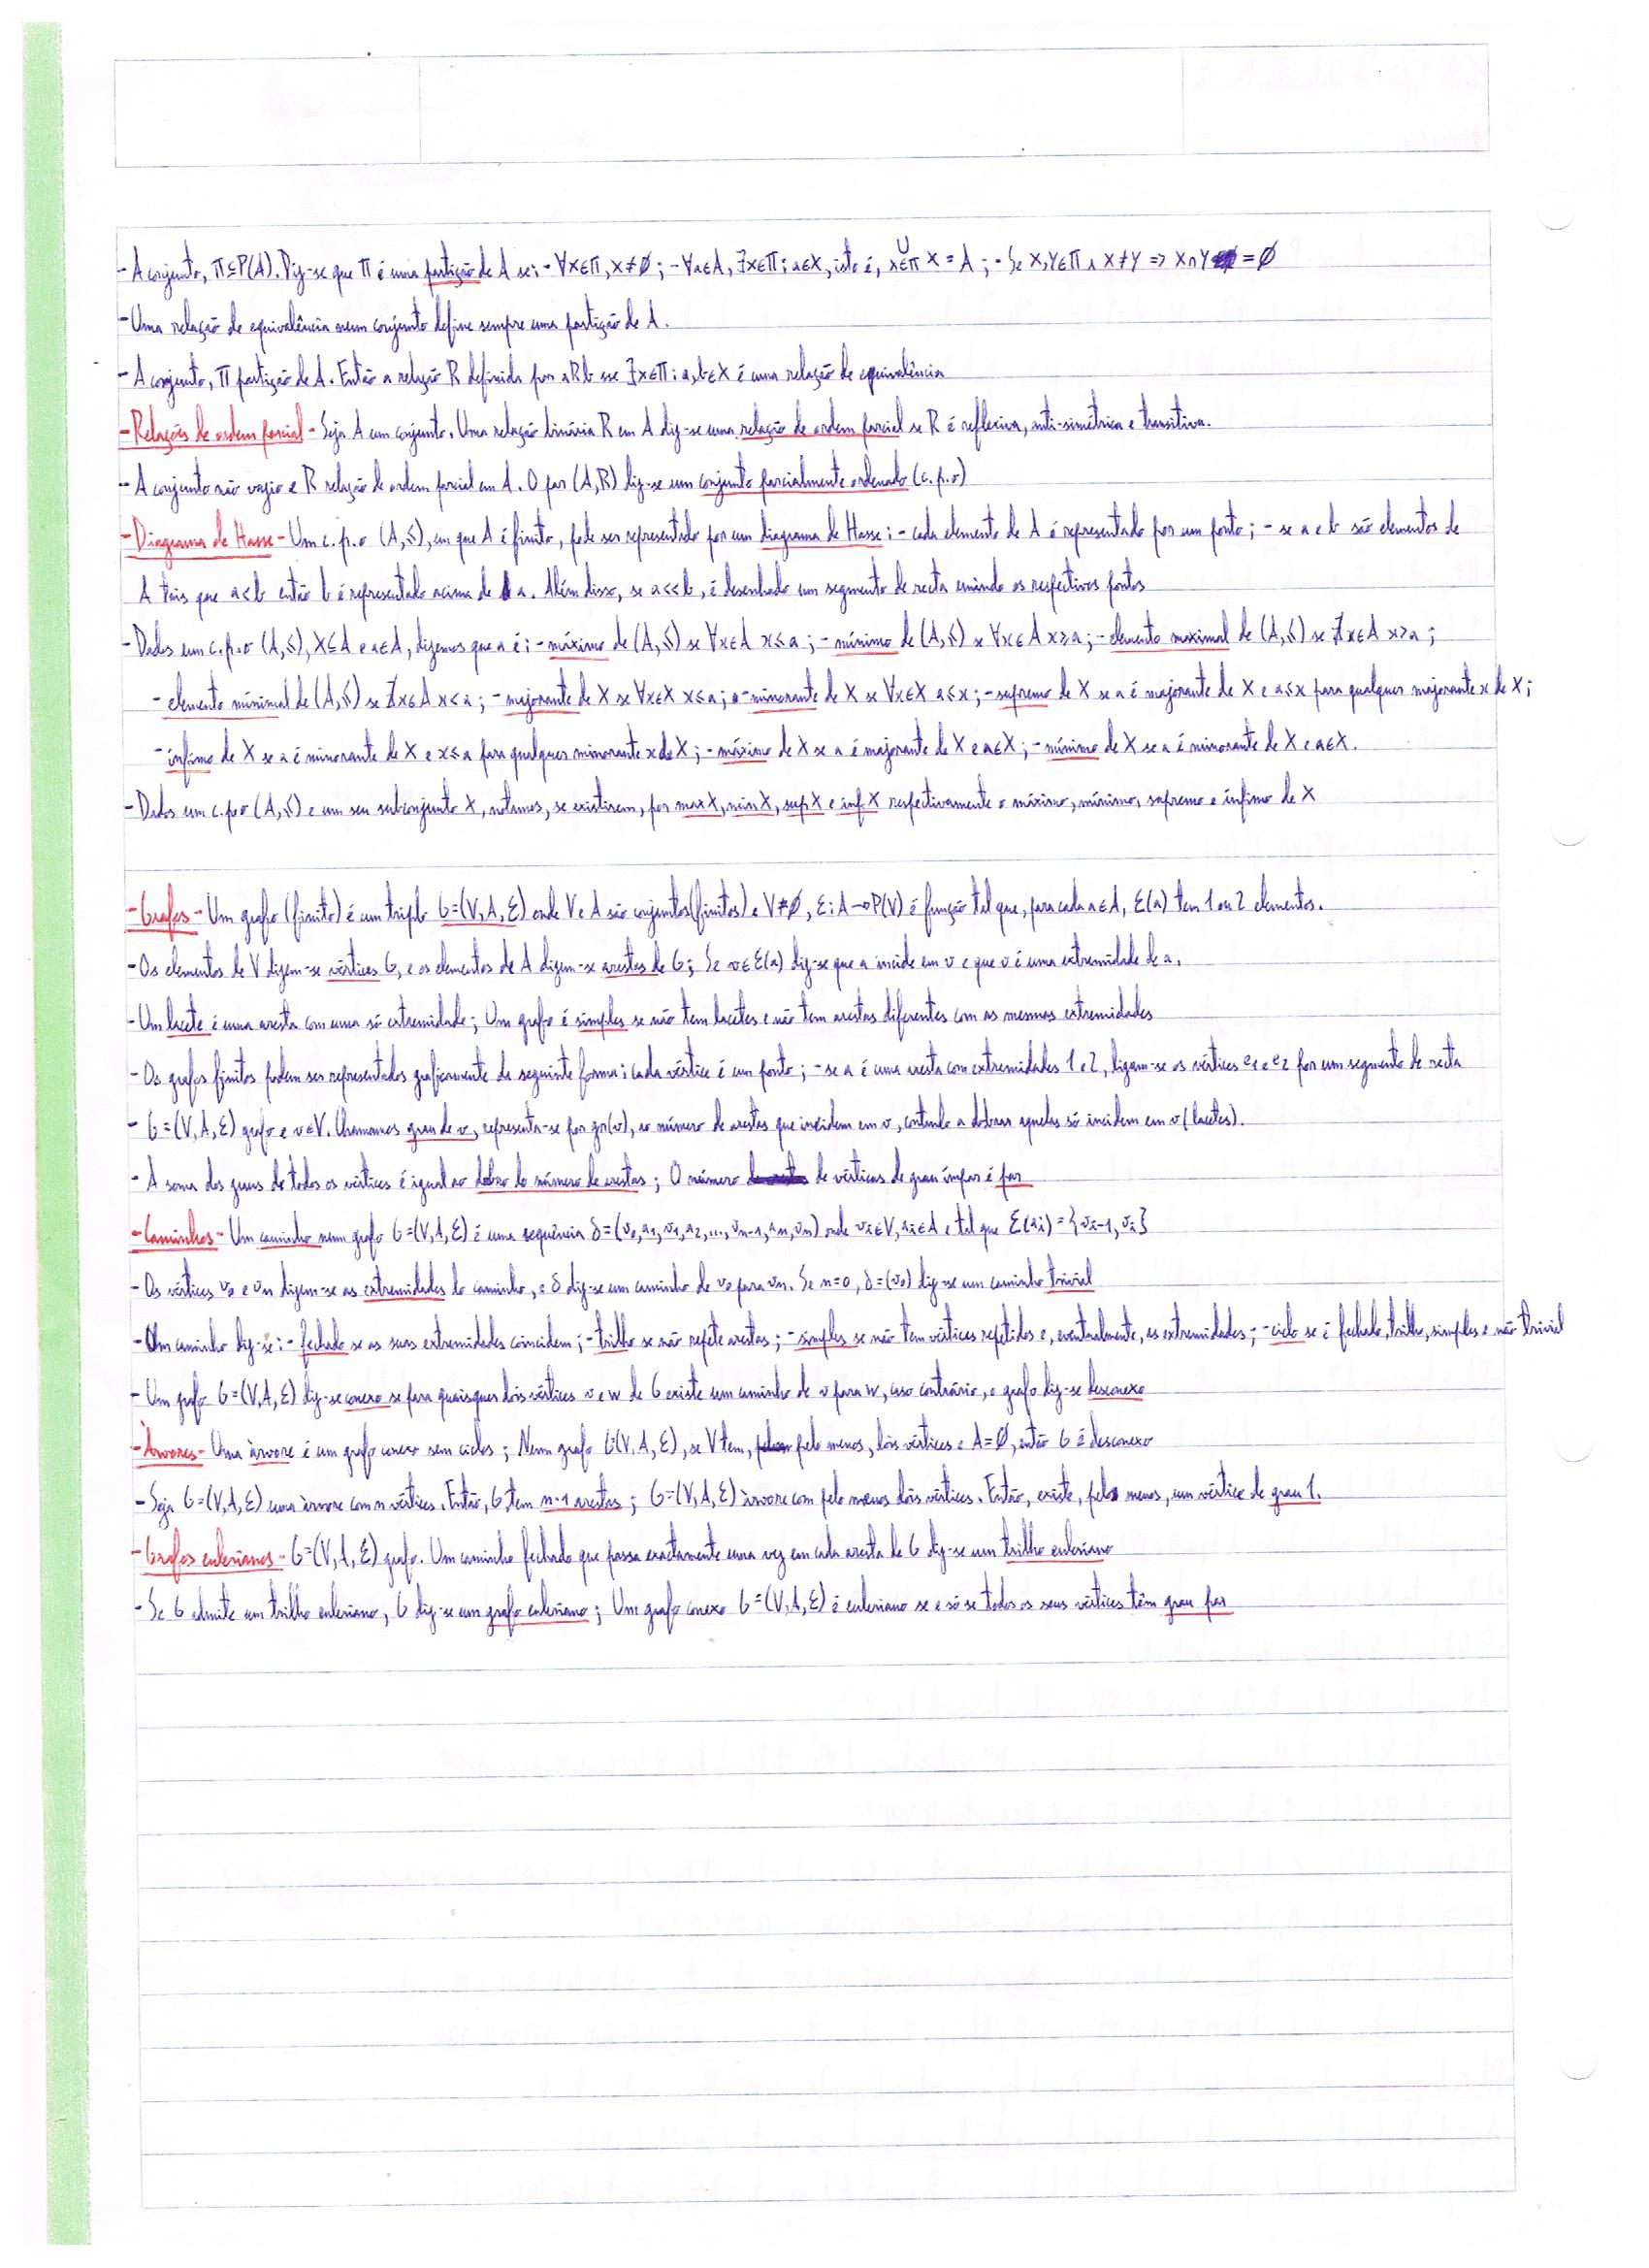 - A conjunto, Π⊆P(A). Diz-se que Π é uma partição de A se: - ∀X∈Π, X≠∅; - ∀a∈A, ∃X∈Π: a∈X, isto é, ⋃ X∈Π X = A; - Se X,Y∈Π ∧ X≠Y => X∩Y = ∅
- Uma relação de equivalência num conjunto define sempre uma partição de A.
- A conjunto, Π partição de A. Então a relação R definida por aRb sse ∃X∈Π: a,b∈X é uma relação de equivalência
- Relações de ordem parcial - Seja A um conjunto. Uma relação binária R em A diz-se uma relação de ordem parcial se R é reflexiva, anti-simétrica e transitiva.
- A conjunto não vazio e R relação de ordem parcial em A. O par (A,R) diz-se um conjunto parcialmente ordenado (c.p.o)
- Diagrama de Hasse - Um c.p.o (A,≤), em que A é finito, pode ser representado por um diagrama de Hasse: - cada elemento de A é representado por um ponto; - se a e b são elementos de
A tais que a<b então b é representado acima de a. Além disso, se a<<b, é desenhado um segmento de recta unindo os respectivos pontos
- Dados um c.p.o (A,≤), X⊆A e a∈A, dizemos que a é: - máximo de (A,≤) se ∀x∈A x≤a; - mínimo de (A,≤) se ∀x∈A x≥a; - elemento maximal de (A,≤) se ∄x∈A x>a;
- elemento minimal de (A,≤) se ∄x∈A x<a; - majorante de X se ∀x∈X x≤a; - minorante de X se ∀x∈X a≤x; - supremo de X se a é majorante de X e a≤x para qualquer majorante x de X;
- ínfimo de X se a é minorante de X e x≤a para qualquer minorante x de X; - máximo de X se a é majorante de X e a∈X; - mínimo de X se a é minorante de X e a∈X.
- Dados um c.p.o (A,≤) e um seu subconjunto X, notamos, se existirem, por max X, min X, sup X e inf X respectivamente o máximo, mínimo, supremo e ínfimo de X
- Grafos - Um grafo (finito) é um triplo G=(V,A,Ɛ) onde V e A são conjuntos (finitos) e V≠∅, Ɛ: A→P(V) é função tal que, para cada a∈A, Ɛ(a) tem 1 ou 2 elementos.
- Os elementos de V dizem-se vértices G, e os elementos de A dizem-se arestas de G; Se v∈Ɛ(a) diz-se que a incide em v e que v é uma extremidade de a.
- Um lacete é uma aresta com uma só extremidade; Um grafo é simples se não tem lacetes e não tem arestas diferentes com as mesmas extremidades
- Os grafos finitos podem ser representados graficamente de seguinte forma: cada vértice é um ponto; - se a é uma aresta com extremidades 1 e 2, ligam-se os vértices e1 e e2 por um segmento de recta
- G=(V,A,Ɛ) grafo e v∈V. Chamamos grau de v, representa-se por gr(v), ao número de arestas que incidem em v, contando a dobrar aquelas só incidem em v (lacetes).
- A soma dos graus de todos os vértices é igual ao dobro do número de arestas; O número de vértices de grau ímpar é par
- Caminhos - Um caminho num grafo G=(V,A,Ɛ) é uma sequência δ=(v0,a1,v1,a2,...,vn-1,an,vn) onde vi∈V, ai∈A e tal que Ɛ(ai)={vi-1,vi}
- Os vértices v0 e vn dizem-se as extremidades do caminho, e δ diz-se um caminho de v0 para vn. Se n=0, δ=(v0) diz-se um caminho trivial
- Um caminho diz-se: - fechado se as suas extremidades coincidem; - trilho se não repete arestas; - simples se não tem vértices repetidos e, eventualmente, as extremidades; - ciclo se é fechado, trilho, simples e não trivial
- Um grafo G=(V,A,Ɛ) diz-se conexo se para quaisquer dois vértices v e w de G existe um caminho de v para w, caso contrário, o grafo diz-se desconexo
- Àrvores - Uma àrvore é um grafo conexo sem ciclos; Num grafo G=(V,A,Ɛ), se V tem, pelo menos, dois vértices e A=∅, então G é desconexo
- Seja G=(V,A,Ɛ) uma àrvore com n vértices. Então, G tem n-1 arestas; G=(V,A,Ɛ) àrvore com pelo menos dois vértices. Então, existe, pelo menos, um vértice de grau 1.
- Grafos eulerianos - G=(V,A,Ɛ) grafo. Um caminho fechado que passa exactamente uma vez em cada aresta de G diz-se um trilho euleriano
- Se G admite um trilho euleriano, G diz-se um grafo euleriano; Um grafo conexo G=(V,A,Ɛ) é euleriano se e só se todos os seus vértices têm grau par